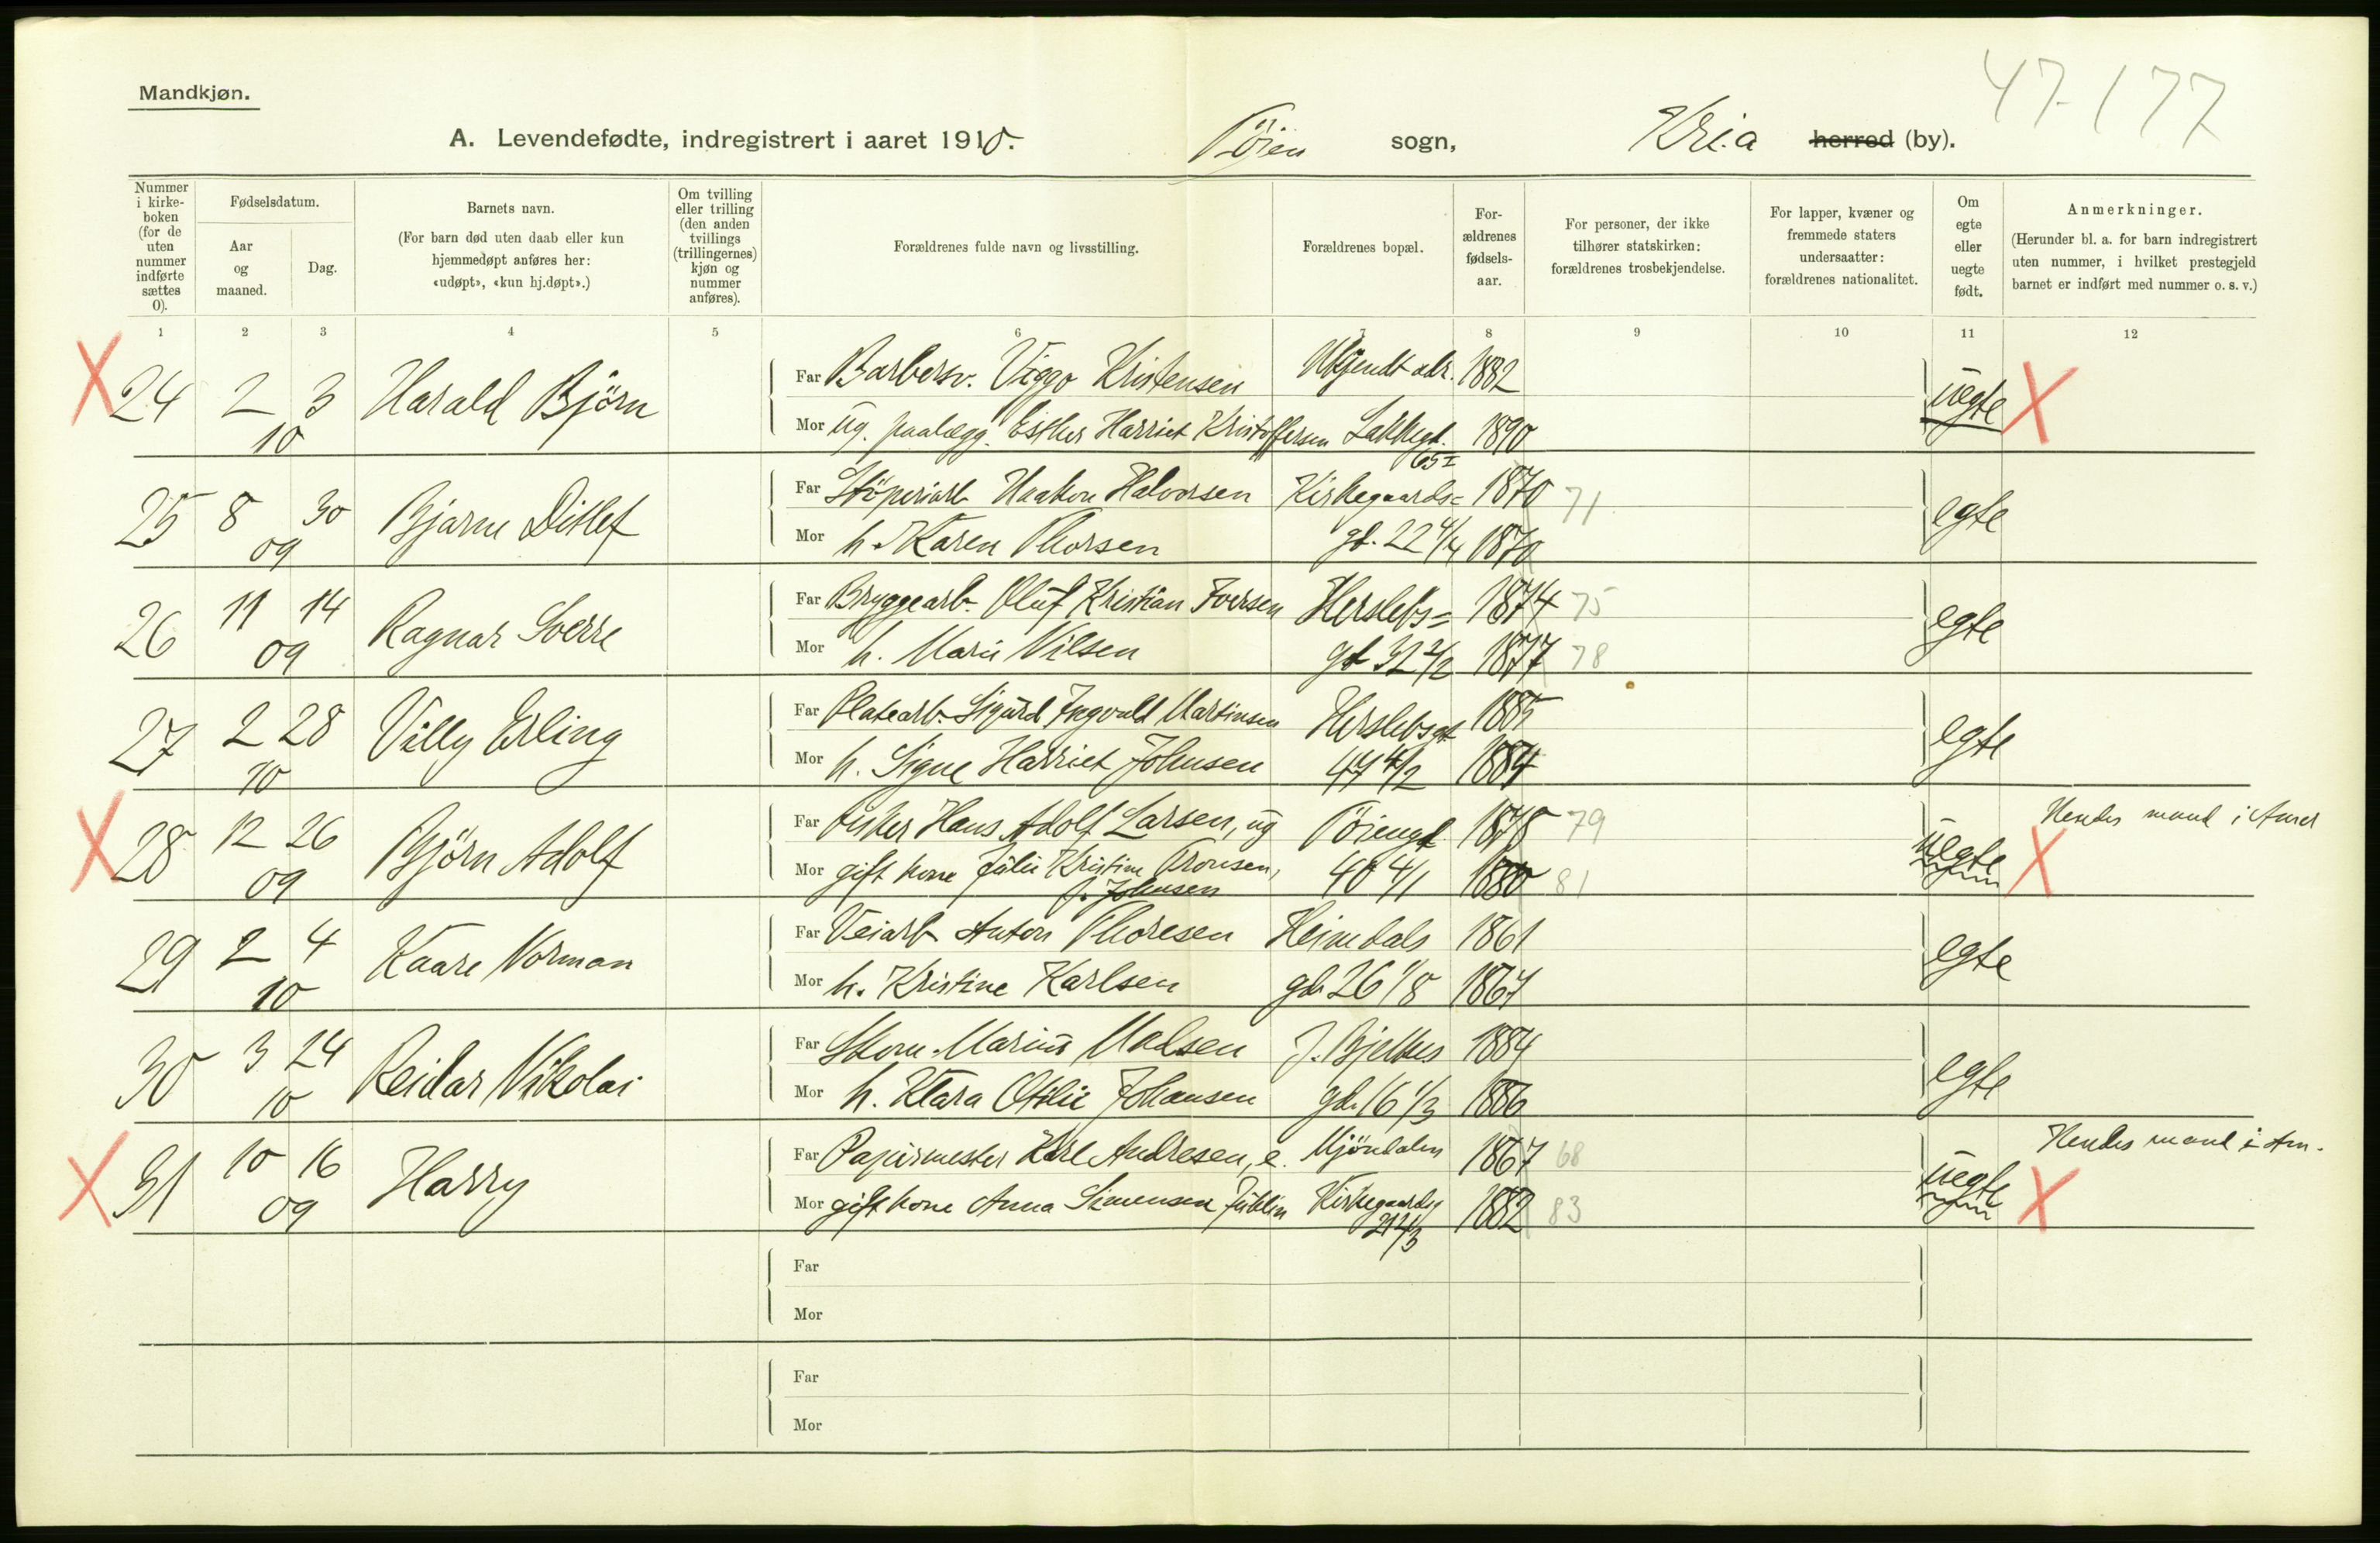 47-177
Mandkjøn.
A. Levendefødte, indregistrert i aaret 1910.
Töien sogn,
Kria herred (by).
Nummer i kirke-boken (for de uten nummer indførte sættes 0).
Fødselsdatum.
Aar og maaned.
Dag.
Barnets navn.
(For barn død uten daab eller kun hjemmedøpt anføres her: «udøpt», «kun hj.døpt».)
Om tvilling eller trilling (den anden tvillings (trillingernes) kjøn og nummer anføres).
Forældrenes fulde navn og livsstilling.
Forældrenes bopæl.
For-ældrenes fødsels-aar.
For personer, der ikke tilhører statskirken: forældrenes trosbekjendelse.
For lapper, kvæner og fremmede staters undersaatter: forældrenes nationalitet.
Om egte eller uegte født.
Anmerkninger.
(Herunder bl. a. for barn indregistrert uten nummer, i hvilket prestegjeld barnet er indført med nummer o. s. v.)
1 2 3 4 5 6 7 8 9 10 11 12
X 24 2 3 10 Harald Björn
Far Barbersv. Viggo Kristensen Ukjendt adr. 1882
Mor ug. paalægg. Esther Harriet Kristoffersen Lakkegt. 65 I 1890
uegte X
25 8 30 09 Bjarne Ditlef
Far Stöperiarb Haakon Halvorsen Kirkegaards= 1870 71
Mor h. Karen Thorsen gt. 22 4/4 1870
egte
26 11 14 09 Ragnar Sverre
Far Bryggearb. Oluf Kristian Iversen Herslebs= 1874 75
Mor h. Marie Nilsen gt 32 2/2 1877 78
egte
27 2 28 10 Villy Erling
Far Platearb. Sigurd Ingvald Martinsen Herslebsgt 1885
Mor h. Signe Harriet Johnsen 47 4/2 1884
egte
X 28 12 26 09 Björn Adolf
Far Fisker Hans Adolf Larsen, ug Töiengt. 1878 79
Mor gift kone Julie Kristine Aronsen, f. Johnsen 40 4/1 1880 81
uegte X Hendes mand i Amer
29 2 4 10 Kaare Norman
Far Veiarb Anton Thoresen Heimdals 1861
Mor h. Kristine Karlsen gd. 26 1/8 1867
egte
30 3 24 10 Reidar Nikolai
Far Skom. Marius Madsen J. Bjelkes 1884
Mor h. Klara Otilie Johansen gd. 16 1/3 1886
egte
X 31 10 16 09 Harry
Far Papirmester Karl Andresen, e. Mjöndalen 1867 68
Mor gift kone Anna Simensen Jublin Kirkegaardsg 21 4/3 1882 83
uegte X Hendes mand i Am.
Far
Mor
Far
Mor